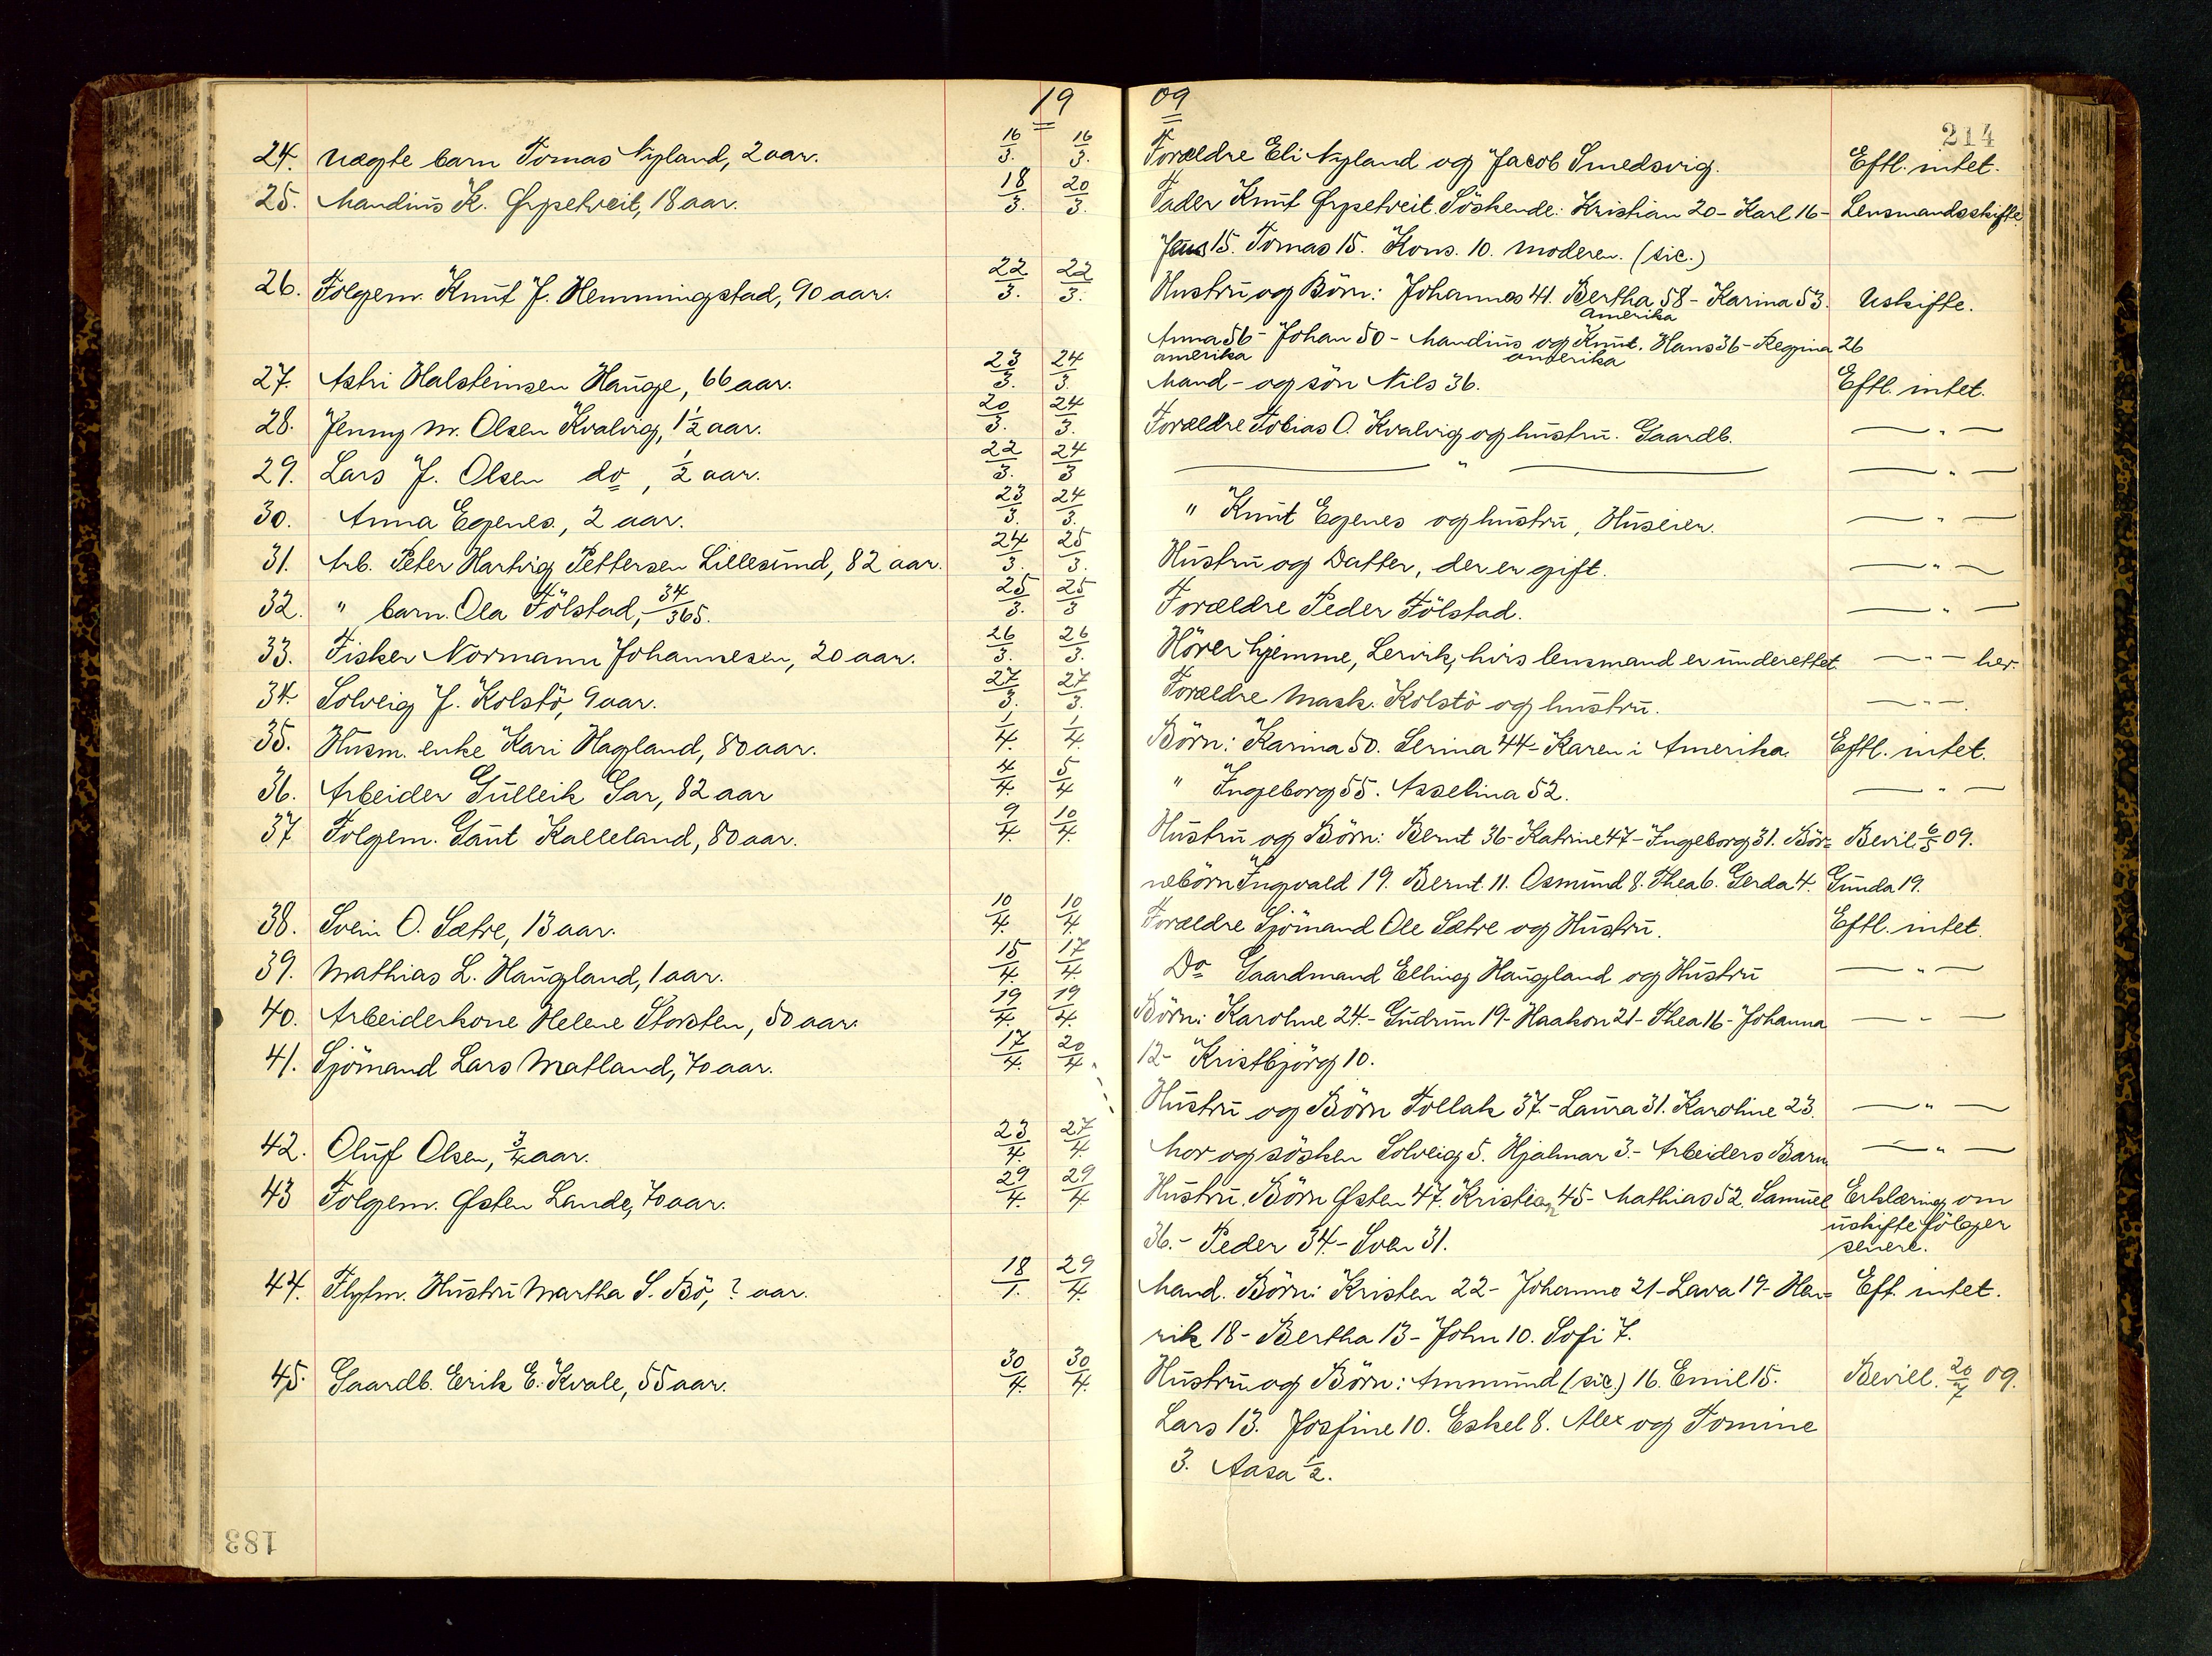 19 09
214
24. uægte barn Tomas Nyland, 2 aar. 16/3. 16/3. Forældre Eli Nyland og Jacob Smedsvig. Eftl. intet.
25. Mandius K. Ørpetveit, 18 aar. 18/3. 20/3. Fader Knut Ørpetveit. Söskende: Kristian 20 - Karl 16 - Lensmandsskifte.
Jens 15. Tomas 15. Kons. 10. moderen. (sic.)
26. Folgem. Knut J. Hemmingstad, 90 aar. 22/3. 22/3. Hustru og Börn: Johannes 41. Bertha 58 - Karina 53. Uskifte.
Amerika
Anna 56 - Johan 50 - Mandius og Knut. Hans 36 - Regina 26
amerika amerika
27. Astri Halsteinsen Hauge, 66 aar. 23/3. 24/3. Mand - og sön Nils 36. Eftl. intet.
28. Jenny M. Olsen Kvalvig, 1 1/2 aar. 20/3. 24/3. Forældre Tobias O. Kvalvig og hustru. Gaardb. — " —
29. Lars J. Olsen do, 1/2 aar. 22/3. 24/3 — " — — " —
30. Anna Egenes, 2 aar. 23/3. 24/3. " Knut Egenes og hustru, Huseier. — " —
31. Arb. Peter Hartvig Pettersen Lillesund, 82 aar. 24/3. 25/3. Hustru og Datter, der er gift. — " —
32. " barn. Ola Fölstad, 34/365. 25/3. 25/3 Forældre Peder Fölstad. — " —
33. Fisker Normann Johannesen, 20 aar. 26/3. 26/3. Hörer hjemme, Lervik, hvis lensmand er underettet. — " — her.
34. Solveig J. Kolstö, 9 aar. 27/3. 27/3. Forældre Mask. Kolstö og hustru. — " —.
35. Husm. enke Kari Hagland, 80 aar. 1/4. 1/4. Börn: Karina 50. Serina 44 - Karen i Amerika. Eftl. intet.
36. Arbeider Gulleik Sar, 82 aar 4/4. 5/4 " Ingeborg 55. Asselina 52. — " —
37 Folgem. Gaut Kalleland, 80 aar. 9/4. 10/4. Hustru og Börn: Bernt 36 - Katrine 47 - Ingeborg 31. Bör= Bevil. 6/5 09.
nebörn Ingvald 19. Bernt. 11. Osmund 8. Thea 6. Gerda 4. Gunda 19.
38. Svein O. Sætre, 13 aar. 10/4. 10/4. Forældre Sjömand Ole Sætre og Hustru. Eftl. intet.
39. Mathias L. Haugland, 1 aar. 15/4. 17/4. Do Gaardmand Elling Haugland og Hustru — " —
40. Arbeiderkone Helene Storsten, 50 aar. 19/4. 19/4. Börn: Karoline 24. - Gudrun 19 - Haakon 21 - Thea 16 - Johanna — " —
41. Sjömand Lars Matland, 70 aar. 17/4. 20/4. 12 - Kristbjörg 10.
Hustru og Börn Tollak 37. - Laura 31. Karoline 23. — " —
42. Oluf Olsen, 3/4 aar. 23/4. 27/4. Mor og sösken Solveig 5. Hjalmar 3. - Arbeiders Barn. — " —
43 Folgem. Østen Lande, 70 aar. 29/4. 29/4. Hustru. Börn Østen 47. Kristian 45 - Mathias 52. Samuel Erklæring om
uskifte fölger
36. - Peder 34. - Sven 31. senere.
44. Flytm. Hustru Martha S. Bö, ? aar. 18/1. 29/4. Mand. Börn: Kristen 22 - Johanne 21 - Lava 19 - Hen= Eft. intet.
rik 18 - Bertha 13 - John 10. Sofi 7.
45. Gaardb. Erik E. Kvale, 55 aar. 30/4. 30/4. Hustru og Börn: Ammund (sic.) 16. Emil 15. Bevill. 20/7 09.
Lars 13. Josfine 10. Eskel 8. Alex og Tomine
3. Aasa 1/2.
183